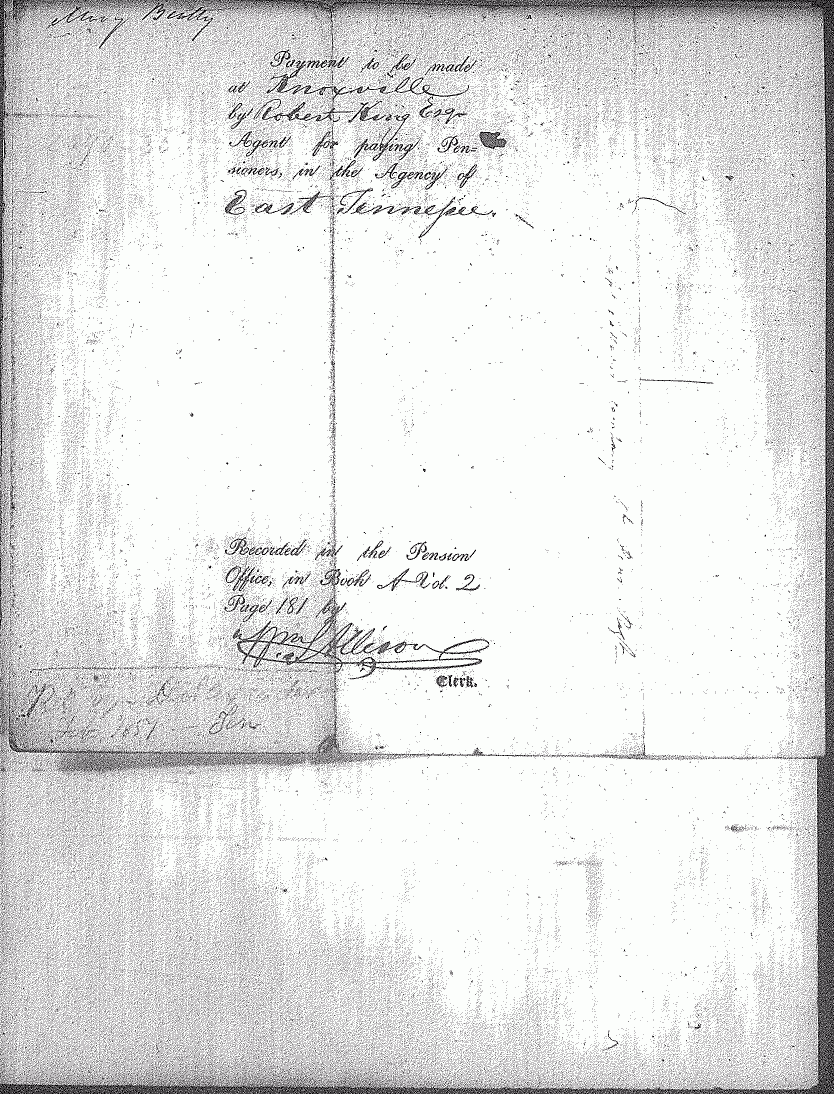 Mary Beatty
Payment to be made
at Knoxville
by Robert King Esqr
Agent for paying Pen-
sioners, in the Agency of
East Tennessee.
Recorded in the Pension
Office, in Book A Vol. 2
Page 181 by
Wm S Allison
Clerk.
1851 Ten
company